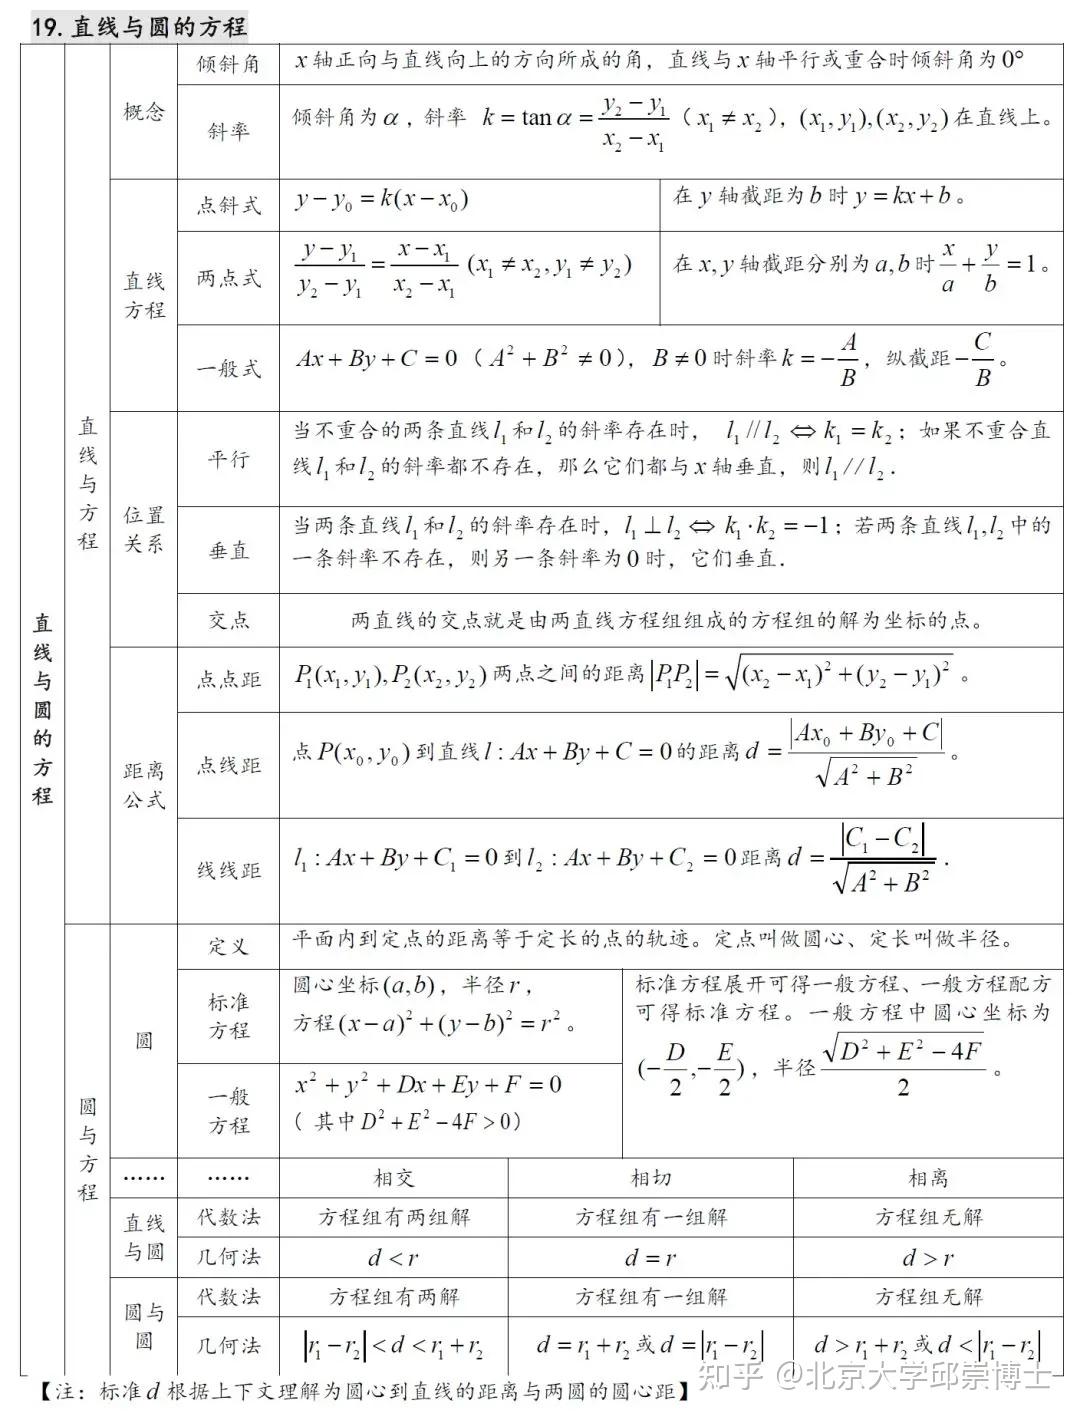 19.直线与圆的方程
直线与圆的方程
直线与方程
概念
倾斜角
x轴正向与直线向上的方向所成的角，直线与x轴平行或重合时倾斜角为0°
斜率
倾斜角为α，斜率 k=tanα=(y₂−y₁)/(x₂−x₁)（x₁≠x₂），(x₁,y₁),(x₂,y₂)在直线上。
直线
方程
点斜式
y−y₀=k(x−x₀)
在y轴截距为b时y=kx+b。
两点式
(y−y₁)/(y₂−y₁)=(x−x₁)/(x₂−x₁)(x₁≠x₂,y₁≠y₂)
在x,y轴截距分别为a,b时x/a+y/b=1。
一般式
Ax+By+C=0（A²+B²≠0），B≠0时斜率k=−A/B，纵截距−C/B。
位置
关系
平行
当不重合的两条直线l₁和l₂的斜率存在时，l₁//l₂⇔k₁=k₂；如果不重合直
线l₁和l₂的斜率都不存在，那么它们都与x轴垂直，则l₁//l₂.
垂直
当两条直线l₁和l₂的斜率存在时，l₁⊥l₂⇔k₁·k₂=−1；若两条直线l₁,l₂中的
一条斜率不存在，则另一条斜率为0时，它们垂直.
交点
两直线的交点就是由两直线方程组组成的方程组的解为坐标的点。
距离
公式
点点距
P₁(x₁,y₁),P₂(x₂,y₂)两点之间的距离|P₁P₂|=√((x₂−x₁)²+(y₂−y₁)²)。
点线距
点P(x₀,y₀)到直线l:Ax+By+C=0的距离d=|Ax₀+By₀+C|/√(A²+B²)。
线线距
l₁:Ax+By+C₁=0到l₂:Ax+By+C₂=0距离d=|C₁−C₂|/√(A²+B²).
圆与方程
圆
定义
平面内到定点的距离等于定长的点的轨迹。定点叫做圆心、定长叫做半径。
标准
方程
圆心坐标(a,b)，半径r，
方程(x−a)²+(y−b)²=r²。
标准方程展开可得一般方程、一般方程配方
可得标准方程。一般方程中圆心坐标为
(−D/2,−E/2)，半径√(D²+E²−4F)/2。
一般
方程
x²+y²+Dx+Ey+F=0
（其中D²+E²−4F>0）
…… …… 相交 相切 相离
直线
与圆
代数法 方程组有两组解 方程组有一组解 方程组无解
几何法 d<r d=r d>r
圆与
圆
代数法 方程组有两解 方程组有一组解 方程组无解
几何法 |r₁−r₂|<d<r₁+r₂ d=r₁+r₂或d=|r₁−r₂| d>r₁+r₂或d<|r₁−r₂|
【注：标准d根据上下文理解为圆心到直线的距离与两圆的圆心距】
知乎 @北京大学邱崇博士